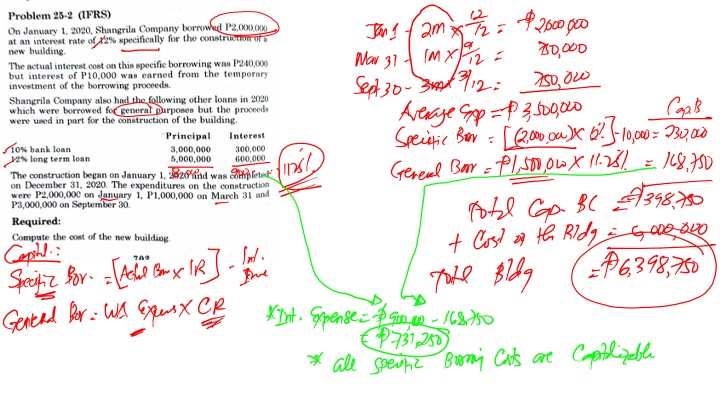 Problem 25-2 (IFRS)
On January 1, 2020, Shangrila Company borrowed P2,000,000
at an interest rate of 12% specifically for the construction of a
new building.
The actual interest cost on this specific borrowing was P240,000
but interest of P10,000 was earned from the temporary
investment of the borrowing proceeds.
Shangrila Company also had the following other loans in 2020
which were borrowed for general purposes but the proceeds
were used in part for the construction of the building.
Principal Interest
10% bank loan 3,000,000 300,000
12% long term loan 5,000,000 600,000
8,000 900 = 11.25%
The construction began on January 1, 2020 and was completed
on December 31, 2020. The expenditures on the construction
were P2,000,000 on January 1, P1,000,000 on March 31 and
P3,000,000 on September 30.
Required:
Compute the cost of the new building.
709
Capital.:
Specific Bor. = [Actual Borr x IR] - Int. Inc
General Bor = WA Expens x CR
Jan 1 - 2M x 12/12 = ₱2,000,000
Mar 31 - 1M x 9/12 = 750,000
Sept 30 - 3M x 3/12 = 750,000
Average Exp = ₱3,500,000 Cap.B
Specific Borr = [(2,000,000) x 12%] - 10,000 = 230,000
General Borr = ₱1,500,000 x 11.25% = 168,750
Total Cap. BC = ₱398,750
+ Cost of the Bldg = 6,000,000
Total Bldg = ₱6,398,750
* Int. Expense = ₱900,000 - 168,750
= ₱731,250
* all specific Borrowing Costs are Capitalizable